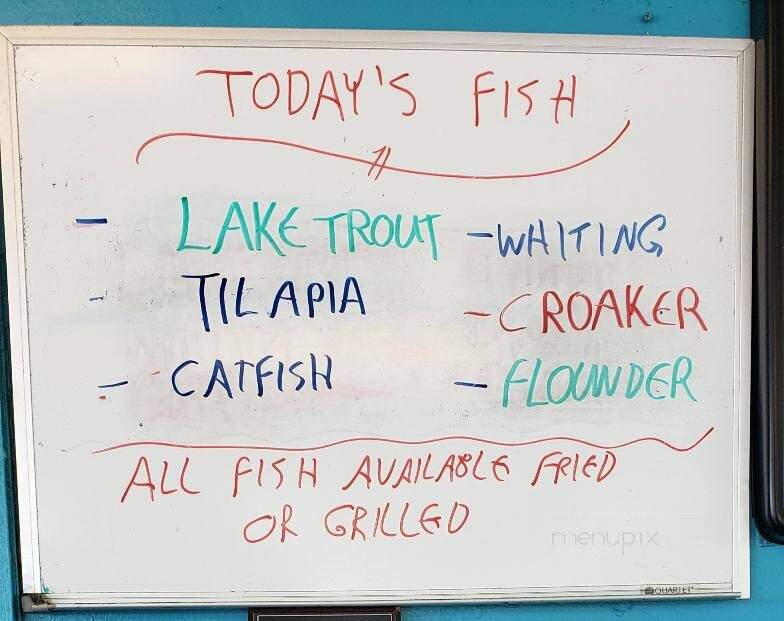 TODAY'S FISH
- LAKE TROUT - WHITING
- TILAPIA - CROAKER
- CATFISH - FLOUNDER
ALL FISH AVAILABLE FRIED
OR GRILLED
menupix
QUARTET